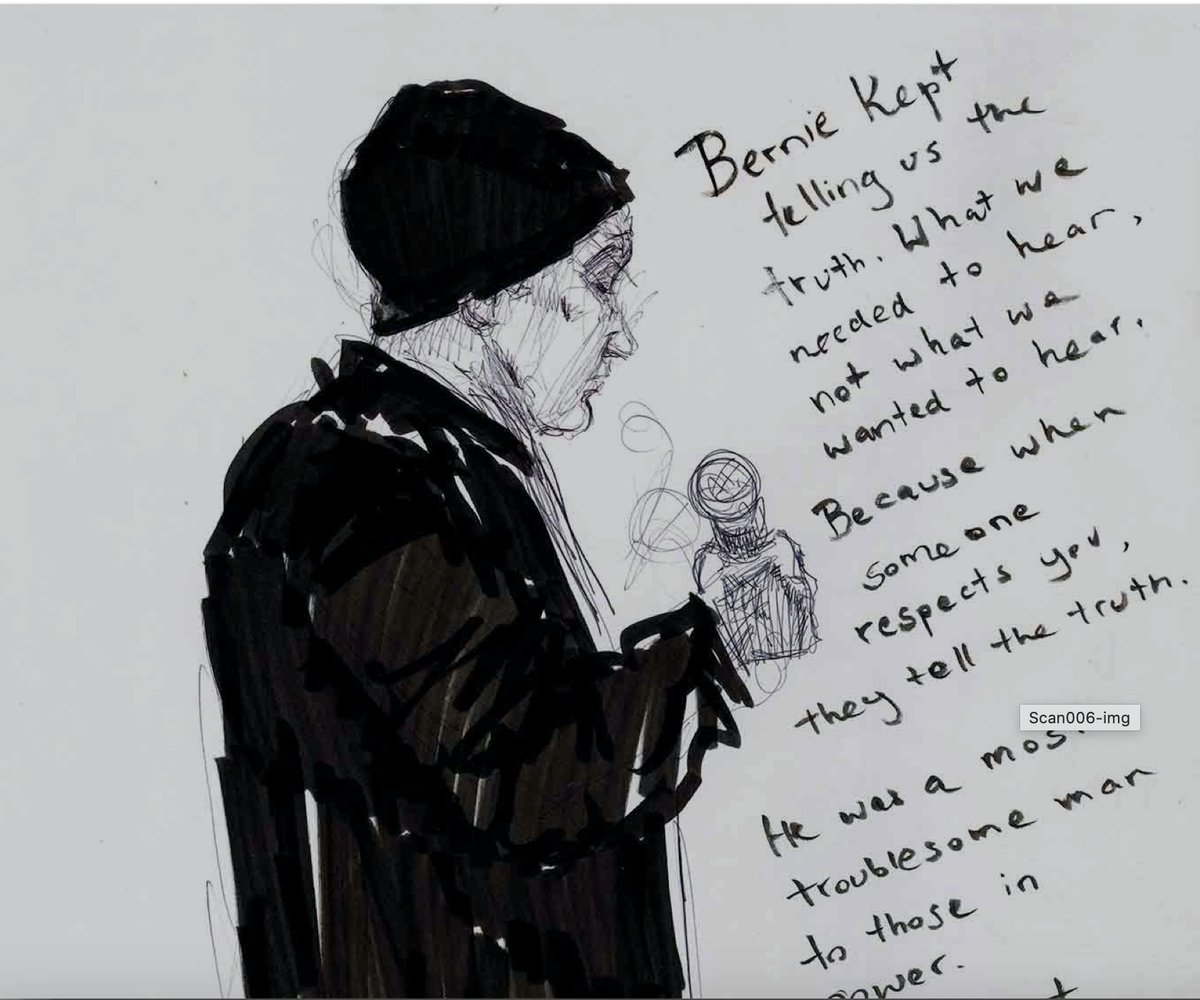 Bernie Kept
telling us the
truth. What we
needed to hear,
not what we
wanted to hear.
Because when
someone
respects you,
they tell the truth.
Scan006-img
He was a
troublesome man
to those in